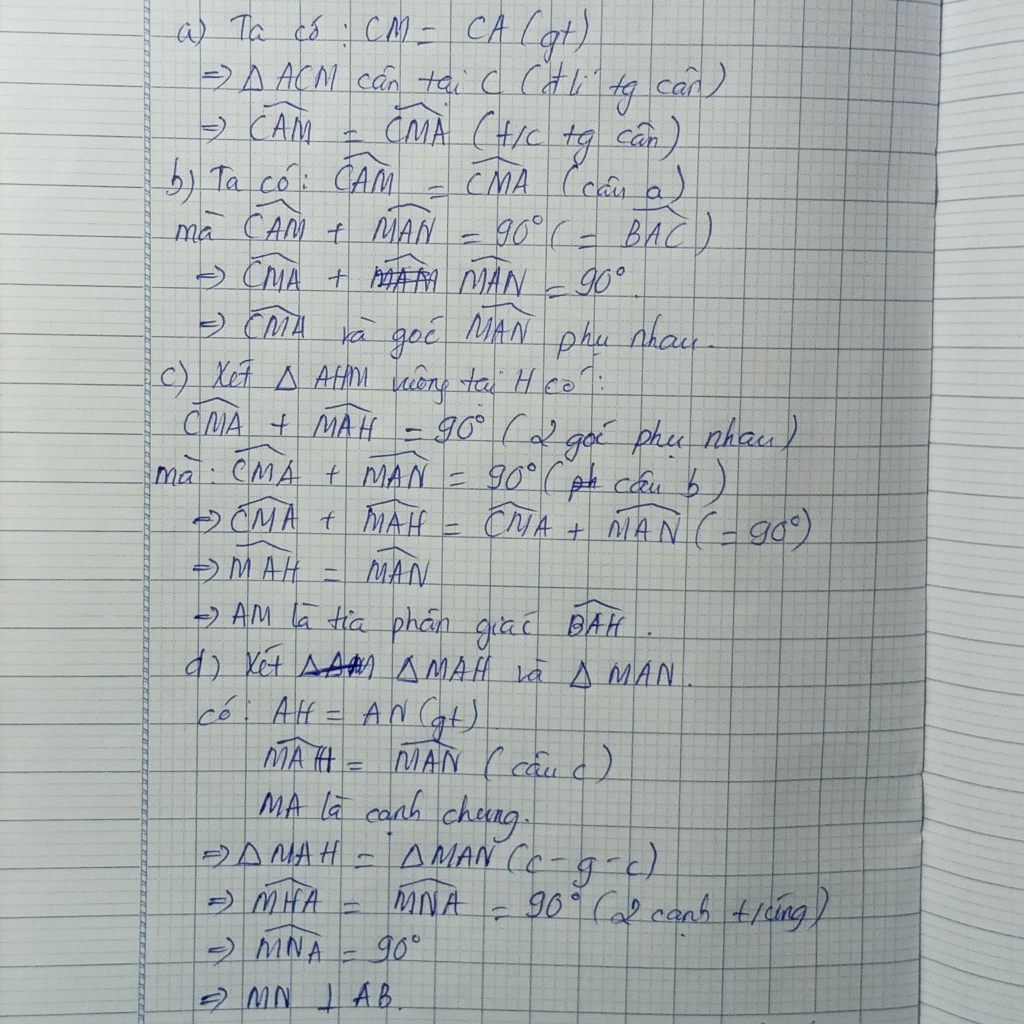 a) Ta có : CM = CA (gt)
=> Δ ACM cân tại C (t/c tg cân)
=> \widehat{CAM} = \widehat{CMA} (t/c tg cân)
b) Ta có : \widehat{CAM} = \widehat{CMA} (câu a)
mà \widehat{CAM} + \widehat{MAN} = 90° (= \widehat{BAC})
=> \widehat{CMA} + \widehat{MAN} = 90°.
=> \widehat{CMA} và góc \widehat{MAN} phụ nhau.
c) Xét Δ AHM vuông tại H có :
\widehat{CMA} + \widehat{MAH} = 90° (2 góc phụ nhau)
mà : \widehat{CMA} + \widehat{MAN} = 90° (câu b)
=> \widehat{CMA} + \widehat{MAH} = \widehat{CMA} + \widehat{MAN} (= 90°)
=> \widehat{MAH} = \widehat{MAN}
=> AM là tia phân giác \widehat{BAH}.
d) Xét Δ MAH và Δ MAN.
có : AH = AN (gt)
\widehat{MAH} = \widehat{MAN} (câu c)
MA là cạnh chung.
=> Δ MAH = Δ MAN (c - g - c)
=> \widehat{MHA} = \widehat{MNA} = 90° (2 cạnh t/ứng)
=> \widehat{MNA} = 90°
=> MN ⊥ AB.